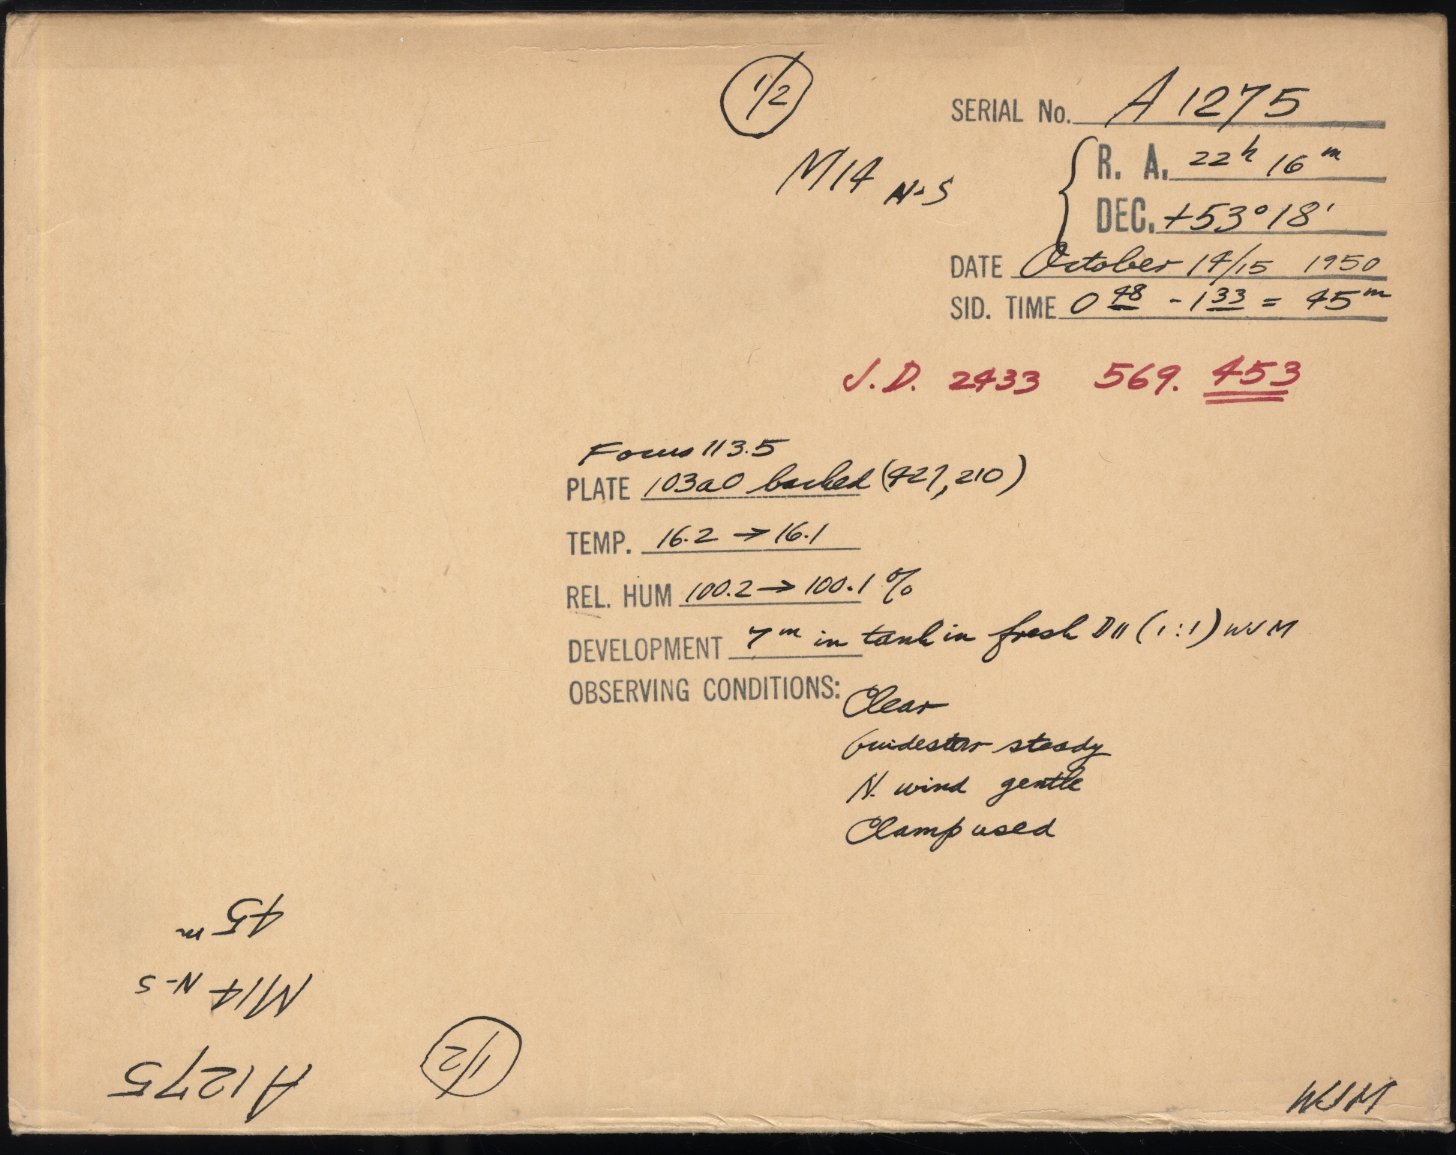 1/2
SERIAL No. A 1275
M14 N-S
R. A. 22h 16m
DEC. +53° 18'
DATE October 14/15 1950
SID. TIME 0 48 - 1 33 = 45m
J.D. 2433 569. 453
Focus 113.5
PLATE 103aO backed (427, 210)
TEMP. 16.2 → 16.1
REL. HUM 100.2 → 100.1 %
DEVELOPMENT 7m in tank in fresh D11 (1:1) WJM
OBSERVING CONDITIONS:
Clear
Guidestar steady
N. wind gentle
Clamp used
45m
M14 N-S
A1275
1/2
WJM